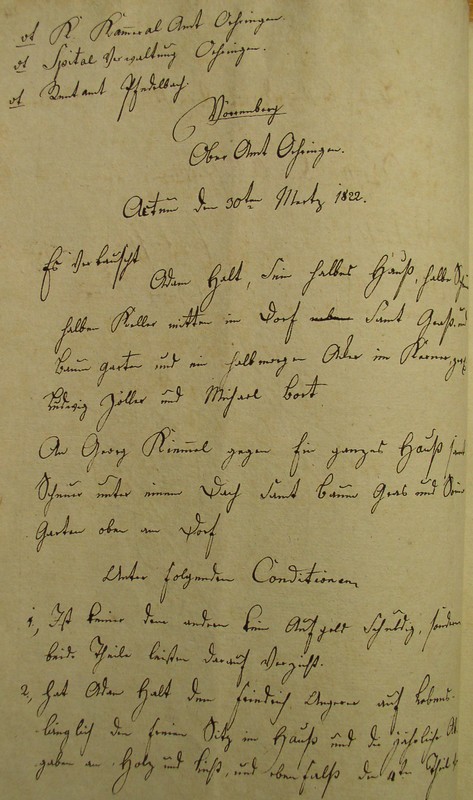 dt K. Kammeral Amt Oehringen.
dt Spital Verwaltung Oehringen.
dt Rentamt Pfedelbach
Vorrenberg
Ober Amt Oehringen.
Actum den 30ten Mertz 1822.
Es vertauscht
Adam Halt, sein halbes Hauß, halbe
halben Keller mitten im Dorf samt Graß und
Baum garten und ein halbmorgen Aker im
Ludwig Zoller und Michael Bort
An Georg Kimmel gegen Ein ganzes Hauß samt
Scheuer unter einem Dach samt Baum Gras und
Garten oben am Dorf
Unter folgenden Conditionen
1., Ist keiner dem andern kein Aufgeld schuldig, sondern
beide Theile leisten darauf Verzicht.
2., hat Adam Halt dem Friedrich Ungerer auf Lebens-
länglich den freien Sitz im Hauß und die jährliche Ab
gaben an Holz und und ebenfalß den 4ten Theil